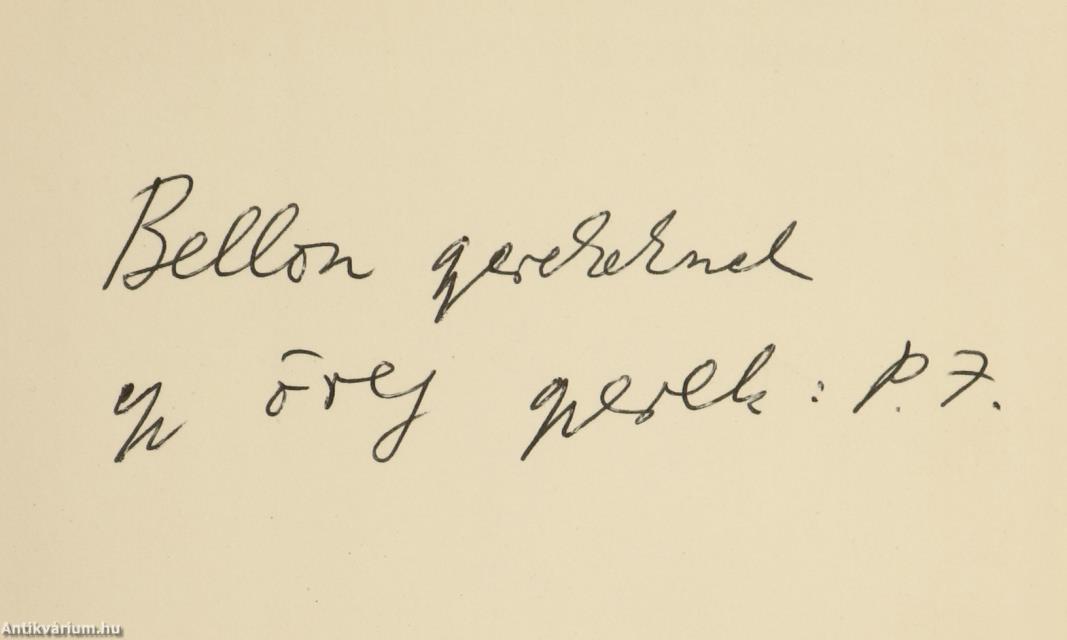 Bellon gyerekeknek
egy öreg gyerek: P. F.
Antikvárium.hu